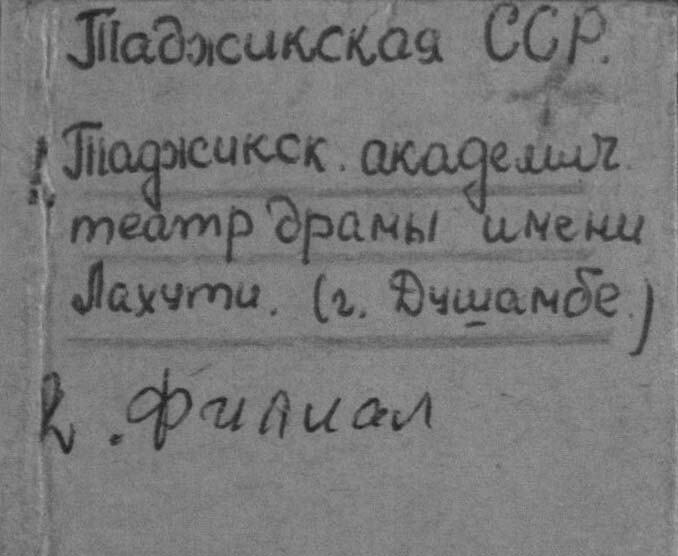 Таджикская ССР.
Таджикск. академич.
театр драмы имени
Лахути. (г. Душамбе.)
2. Филиал